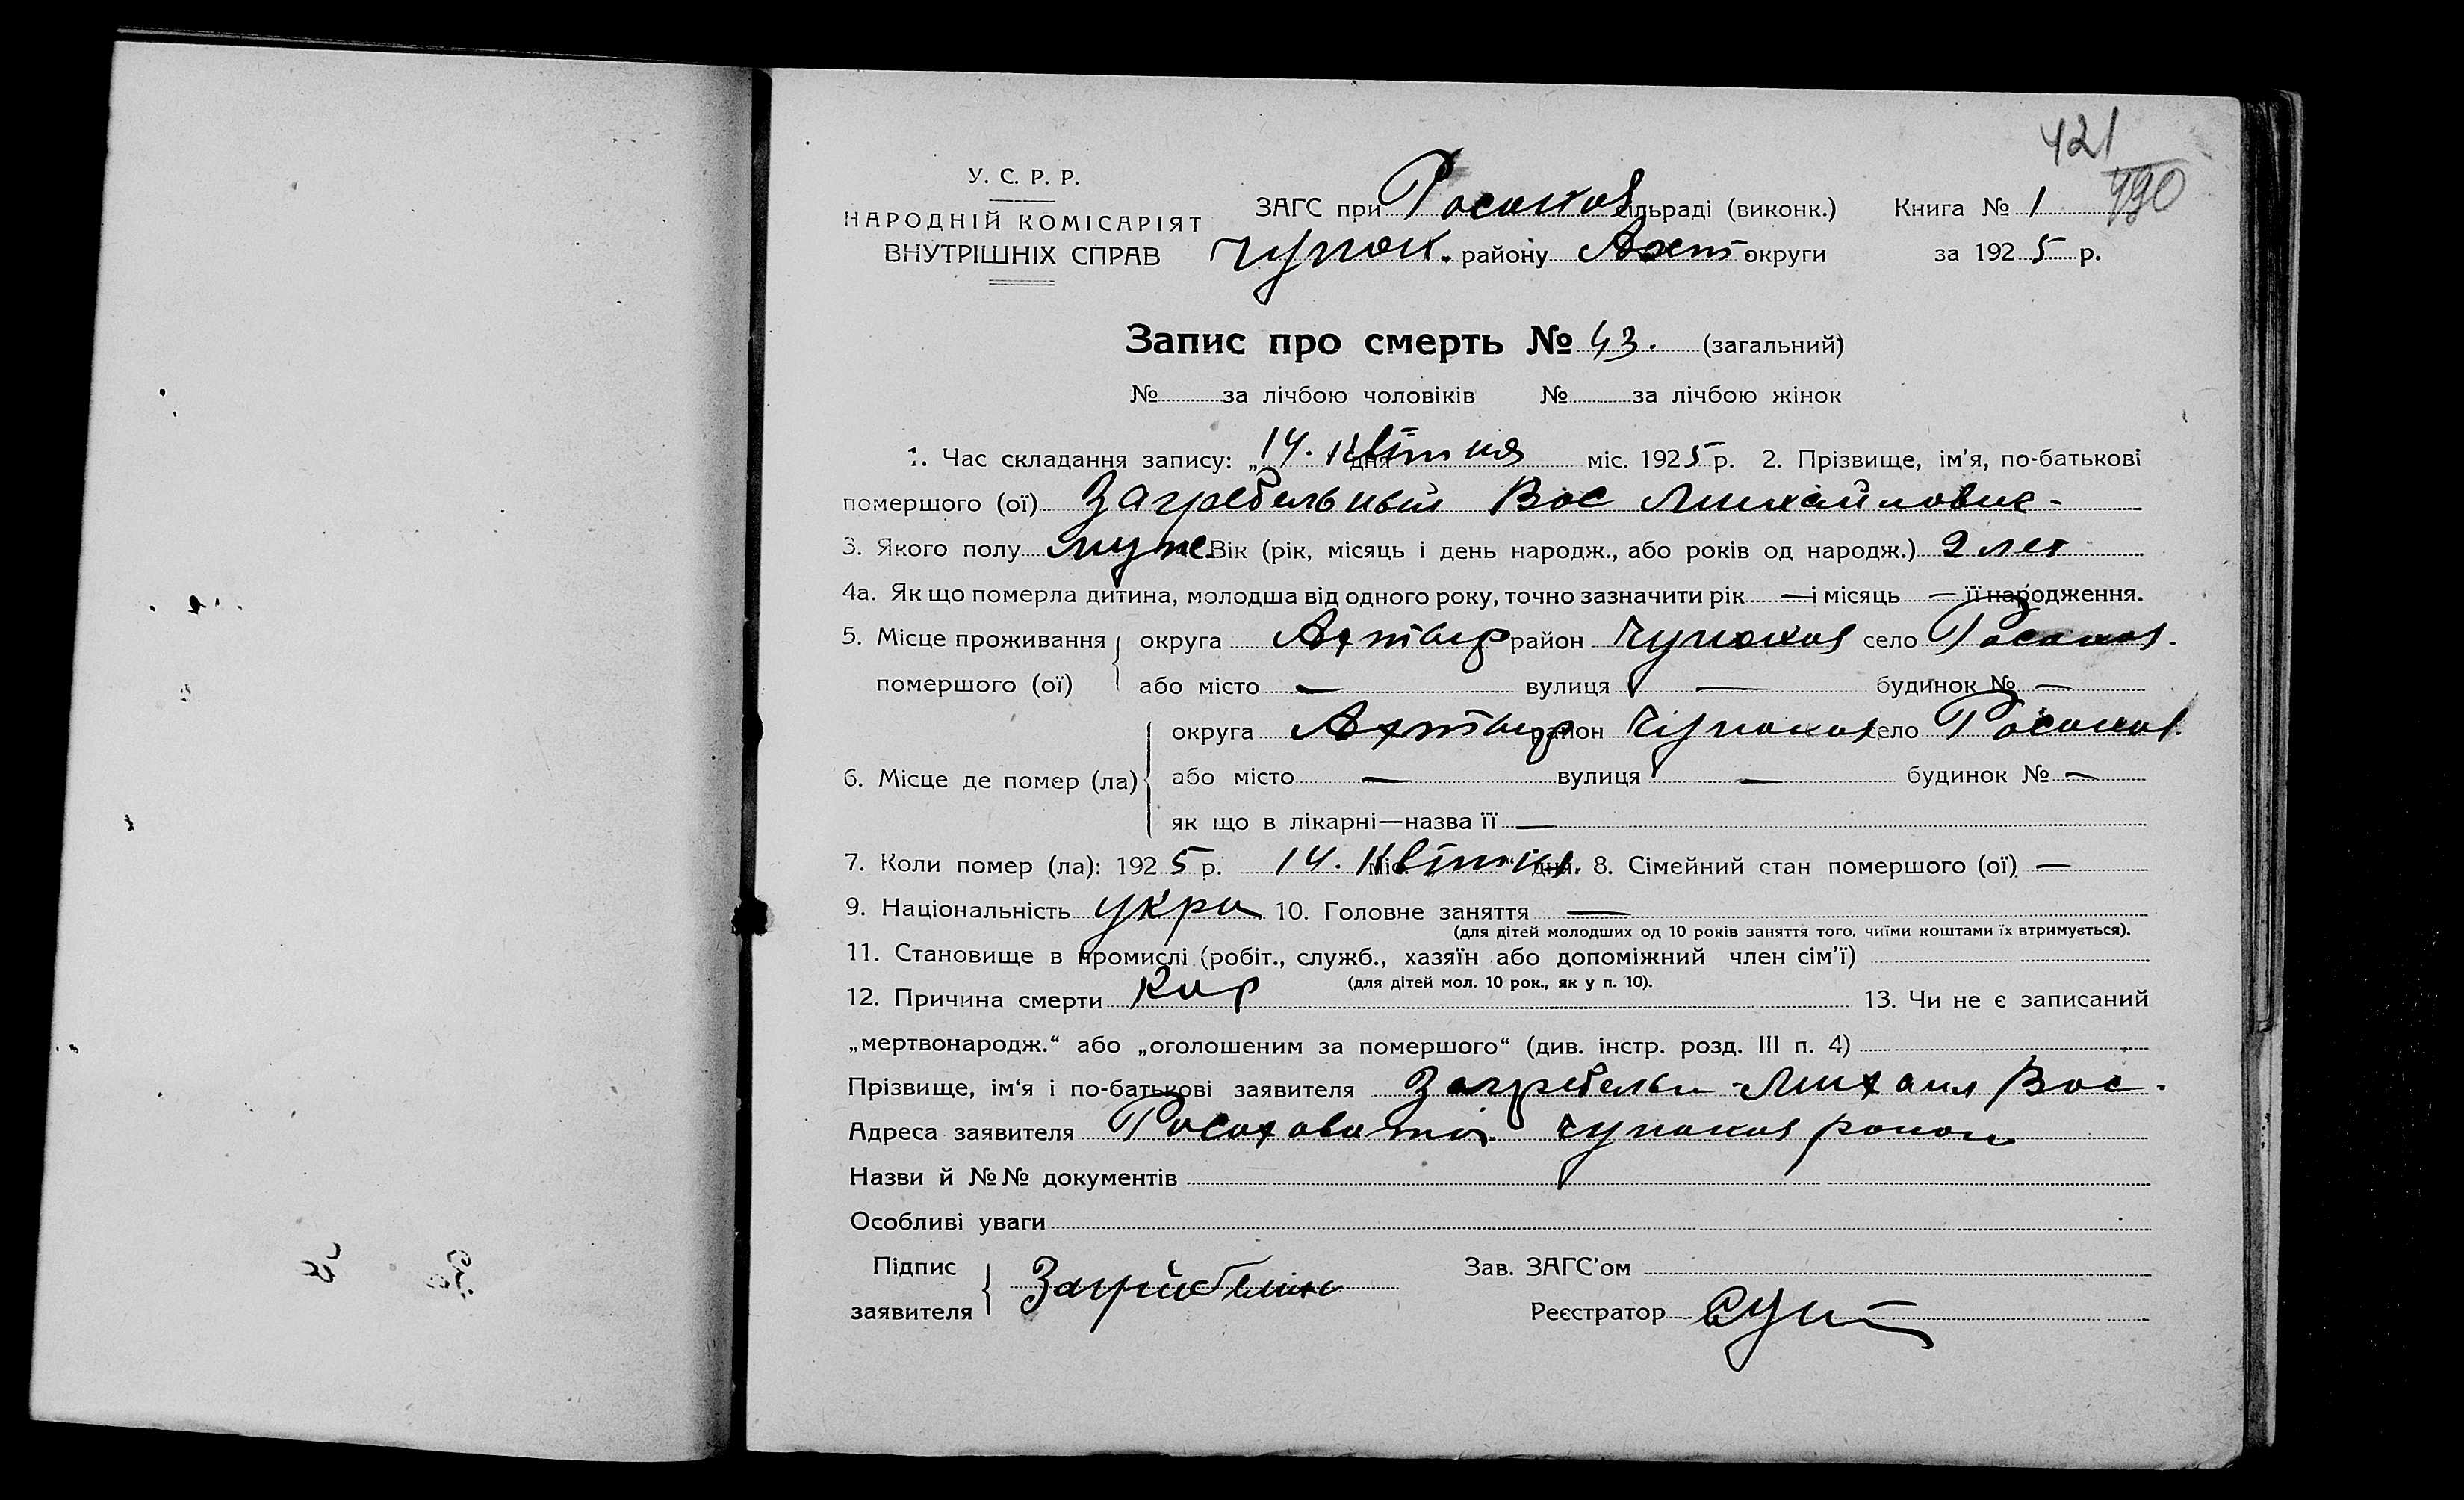 421
490
У. С. Р. Р.
НАРОДНІЙ КОМІСАРІЯТ
ВНУТРІШНІХ СПРАВ
ЗАГС при Росохов сільраді (виконк.) Книга № 1
Чупах. району Ахт. округи за 1925 р.
Запис про смерть № 43. (загальний)
№ за лічбою чоловіків № за лічбою жінок
1. Час складання запису: „14. дня Квітня міс. 1925 р. 2. Прізвище, ім’я, по-батькові
помершого (ої) Загребельный Вас Михайлович-
3. Якого полу муж. Вік (рік, місяць і день народж., або років од народж.) 2 лет
4а. Як що померла дитина, молодша від одного року, точно зазначити рік — і місяць — її народження.
5. Місце проживання округа Ахтыр район Чупахов село Росохов.
помершого (ої) або місто — вулиця — будинок № —
округа Ахтыр район Чупахов село Росохов.
6. Місце де помер (ла) або місто — вулиця — будинок № —
як що в лікарні—назва її —
7. Коли помер (ла): 1925 р. 14. міс. Квітня дня. 8. Сімейний стан помершого (ої) —
9. Національність укра 10. Головне заняття —
(для дітей молодших од 10 років заняття того, чиїми коштами їх втримується).
11. Становище в промислі (робіт., служб., хазяїн або допоміжний член сім’ї)
(для дітей мол. 10 рок., як у п. 10).
12. Причина смерти Кор 13. Чи не є записаний
„мертвонародж.“ або „оголошеним за помершого“ (див. інстр. розд. III п. 4)
Прізвище, ім‘я і по-батькові заявителя Загребельн Михаил Вас.
Адреса заявителя Росоховатої Чупахов район
Назви й №№ документів
Особливі уваги
Підпис
заявителя
Зав. ЗАГС’ом
Реєстратор